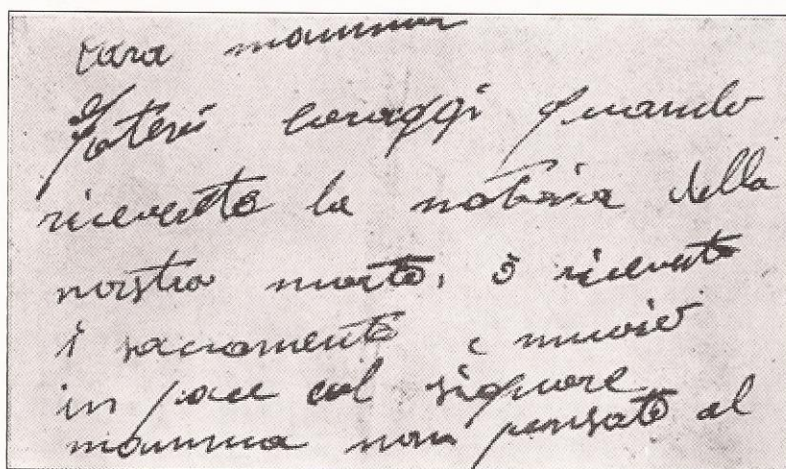 cara mamma
fatevi coraggi quando
riceverete la notizia della
nostra morte, ò ricevuto
i sacramento e muoio
in pace col signore
mamma non pensate al